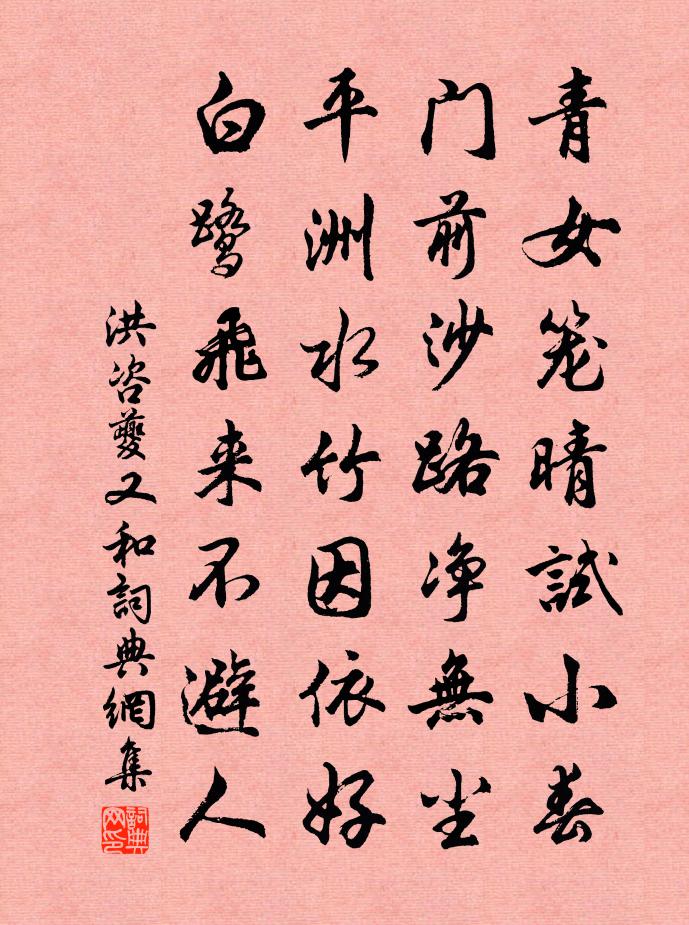 青女笼晴試小春
门前沙路净無尘
平洲水竹因依好
白鹭飛来不避人
洪咨夔又和詞典網集
詞典网印